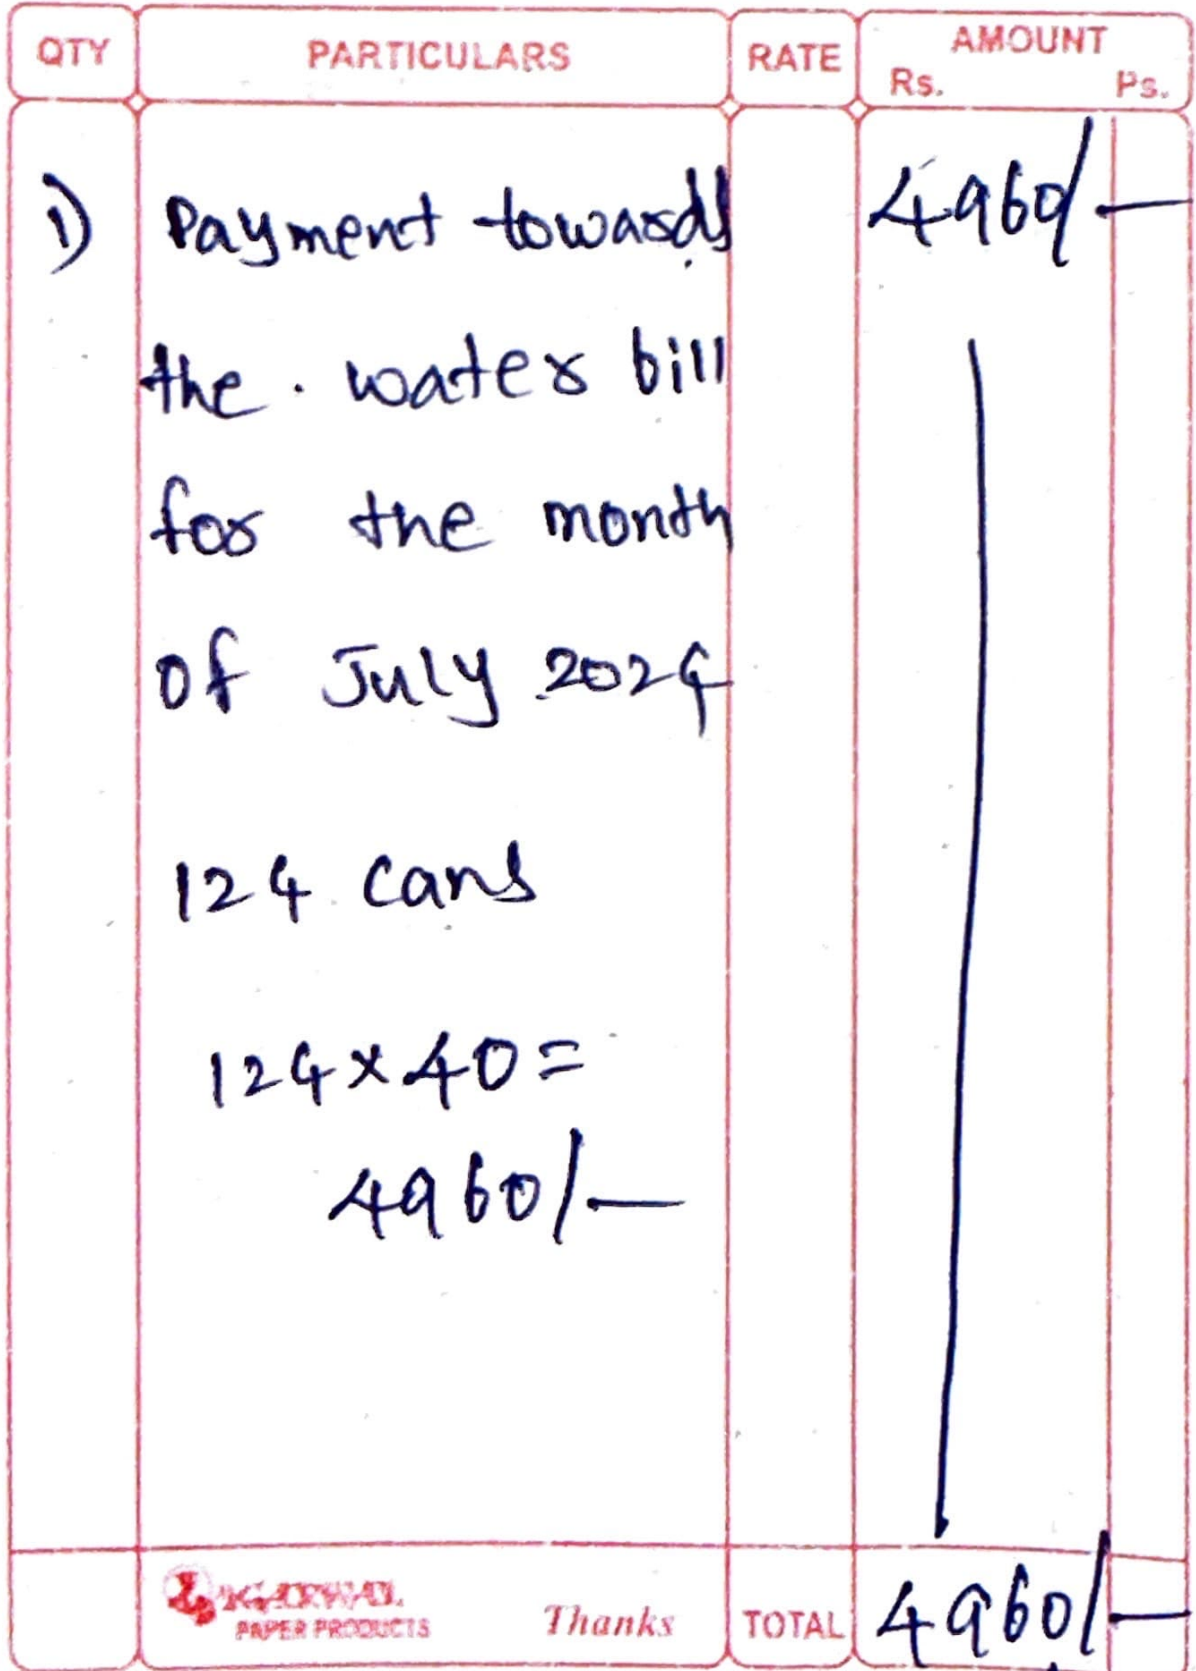 QTY PARTICULARS RATE AMOUNT
Rs. Ps.
1) Payment towards 4960/-
the . water bill
for the month
of July 2024
124 cans
124 x 40 =
4960/-
AGARWAL
PAPER PRODUCTS Thanks TOTAL 4960/-